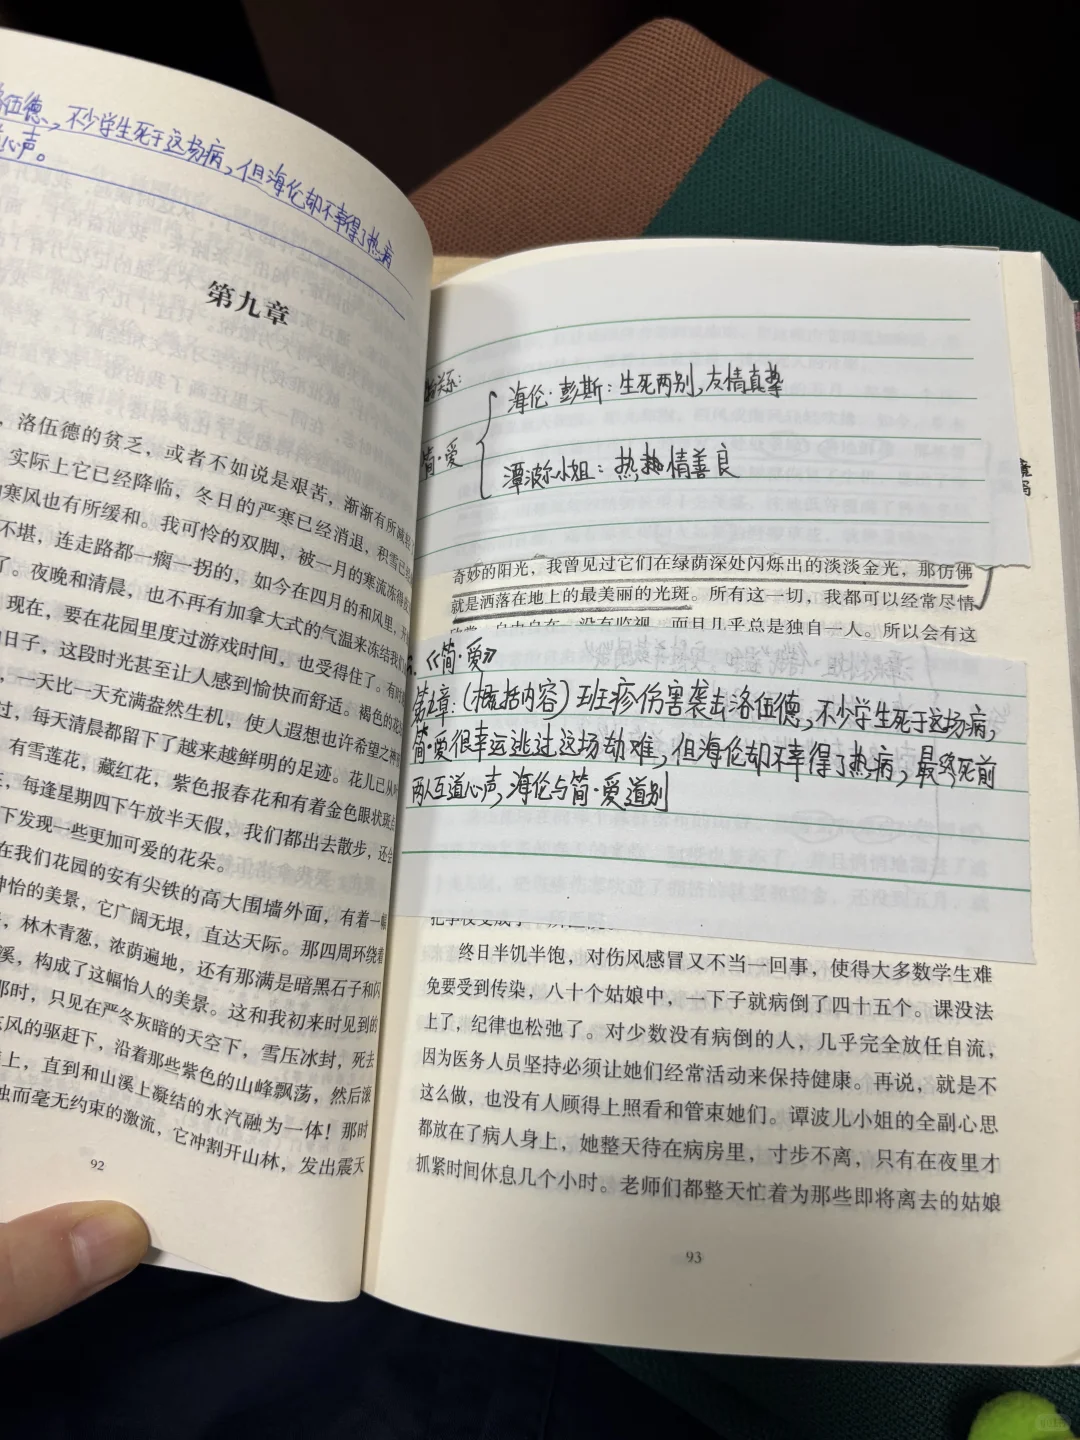 伍德，不少学生死于这场病，但海伦却不幸得了热病
心声。
第九章
，洛伍德的贫乏，或者不如说是艰苦，渐渐有所减轻
实际上它已经降临，冬日的严寒已经消退，积雪已
寒风也有所缓和。我可怜的双脚，被一月的寒流冻得
不堪，连走路都一瘸一拐的，如今在四月的和风里，开
了。夜晚和清晨，也不再有加拿大式的气温来冻结我们
现在，要在花园里度过游戏时间，也受得住了。有时
日子，这段时光甚至让人感到愉快而舒适。褐色的花
，一天比一天充满盎然生机，使人遐想也许希望之神
过，每天清晨都留下了越来越鲜明的足迹。花儿已从
有雪莲花，藏红花，紫色报春花和有着金色眼状斑
，每逢星期四下午放半天假，我们都出去散步，还会
下发现一些更加可爱的花朵。
在我们花园的安有尖铁的高大围墙外面，有着一
神怡的美景，它广阔无垠，直达天际。那四周环绕着
，林木青葱，浓荫遍地，还有那满是暗黑石子和闪
溪，构成了这幅怡人的美景。这和我初来时见到的
那时，只见在严冬灰暗的天空下，雪压冰封，死去
东风的驱赶下，沿着那些紫色的山峰飘荡，然后滚
上，直到和山溪上凝结的水汽融为一体！那时
浊而毫无约束的激流，它冲割开山林，发出震天
92
关系：
海伦·彭斯：生死两别，友情真挚
简·爱
潭波尔小姐：热情善良
奇妙的阳光，我曾见过它们在绿荫深处闪烁出的淡淡金光，那仿佛
就是洒落在地上的最美丽的光斑。所有这一切，我都可以经常尽情
自由自在，没有监视，而且几乎总是独自一人。所以会有这
《简·爱》
第九章：（概括内容）斑疹伤害袭击洛伍德，不少学生死于这场病，
简·爱很幸运逃过这场劫难，但海伦却不幸得了热病，最终死前
两人互道心声，海伦与简·爱道别
终日半饥半饱，对伤风感冒又不当一回事，使得大多数学生难
免要受到传染，八十个姑娘中，一下子就病倒了四十五个。课没法
上了，纪律也松弛了。对少数没有病倒的人，几乎完全放任自流，
因为医务人员坚持必须让她们经常活动来保持健康。再说，就是不
这么做，也没有人顾得上照看和管束她们。谭波儿小姐的全副心思
都放在了病人身上，她整天待在病房里，寸步不离，只有在夜里才
抓紧时间休息几个小时。老师们都整天忙着为那些即将离去的姑娘
93